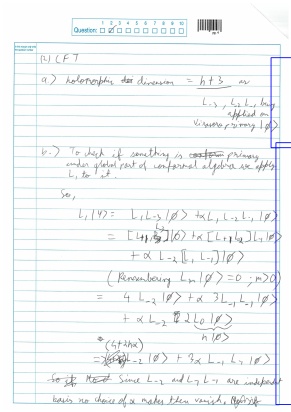 Question: 1 2 3 4 5 6 7 8 9 10
(2) CFT
a.) holomorphic dimension = h + 3 as
L₋₃, L₋₂ L₋₁ being
applied on
virasoro primary |φ⟩
b.) To check if something is primary
under global part of conformal algebra we apply
L₁ to it.
So,
L₁|ψ⟩ = L₁ L₋₃ |φ⟩ + α L₁ L₋₂ L₋₁ |φ⟩
= [L₁, L₋₃] |φ⟩ + α [L₁, L₋₂] L₋₁ |φ⟩
+ α L₋₂ [L₁, L₋₁] |φ⟩
(Remembering Lₘ |φ⟩ = 0 ; m>0)
= 4 L₋₂ |φ⟩ + α 3 L₋₁ L₋₁ |φ⟩
+ α L₋₂ 2 L₀ |φ⟩
h |φ⟩
(4+2hα)
= L₋₂ |φ⟩ + 3α L₋₁ L₋₁ |φ⟩
So Since L₋₂ and L₋₁ L₋₁ are independent
basis no choice of α makes them vanish,